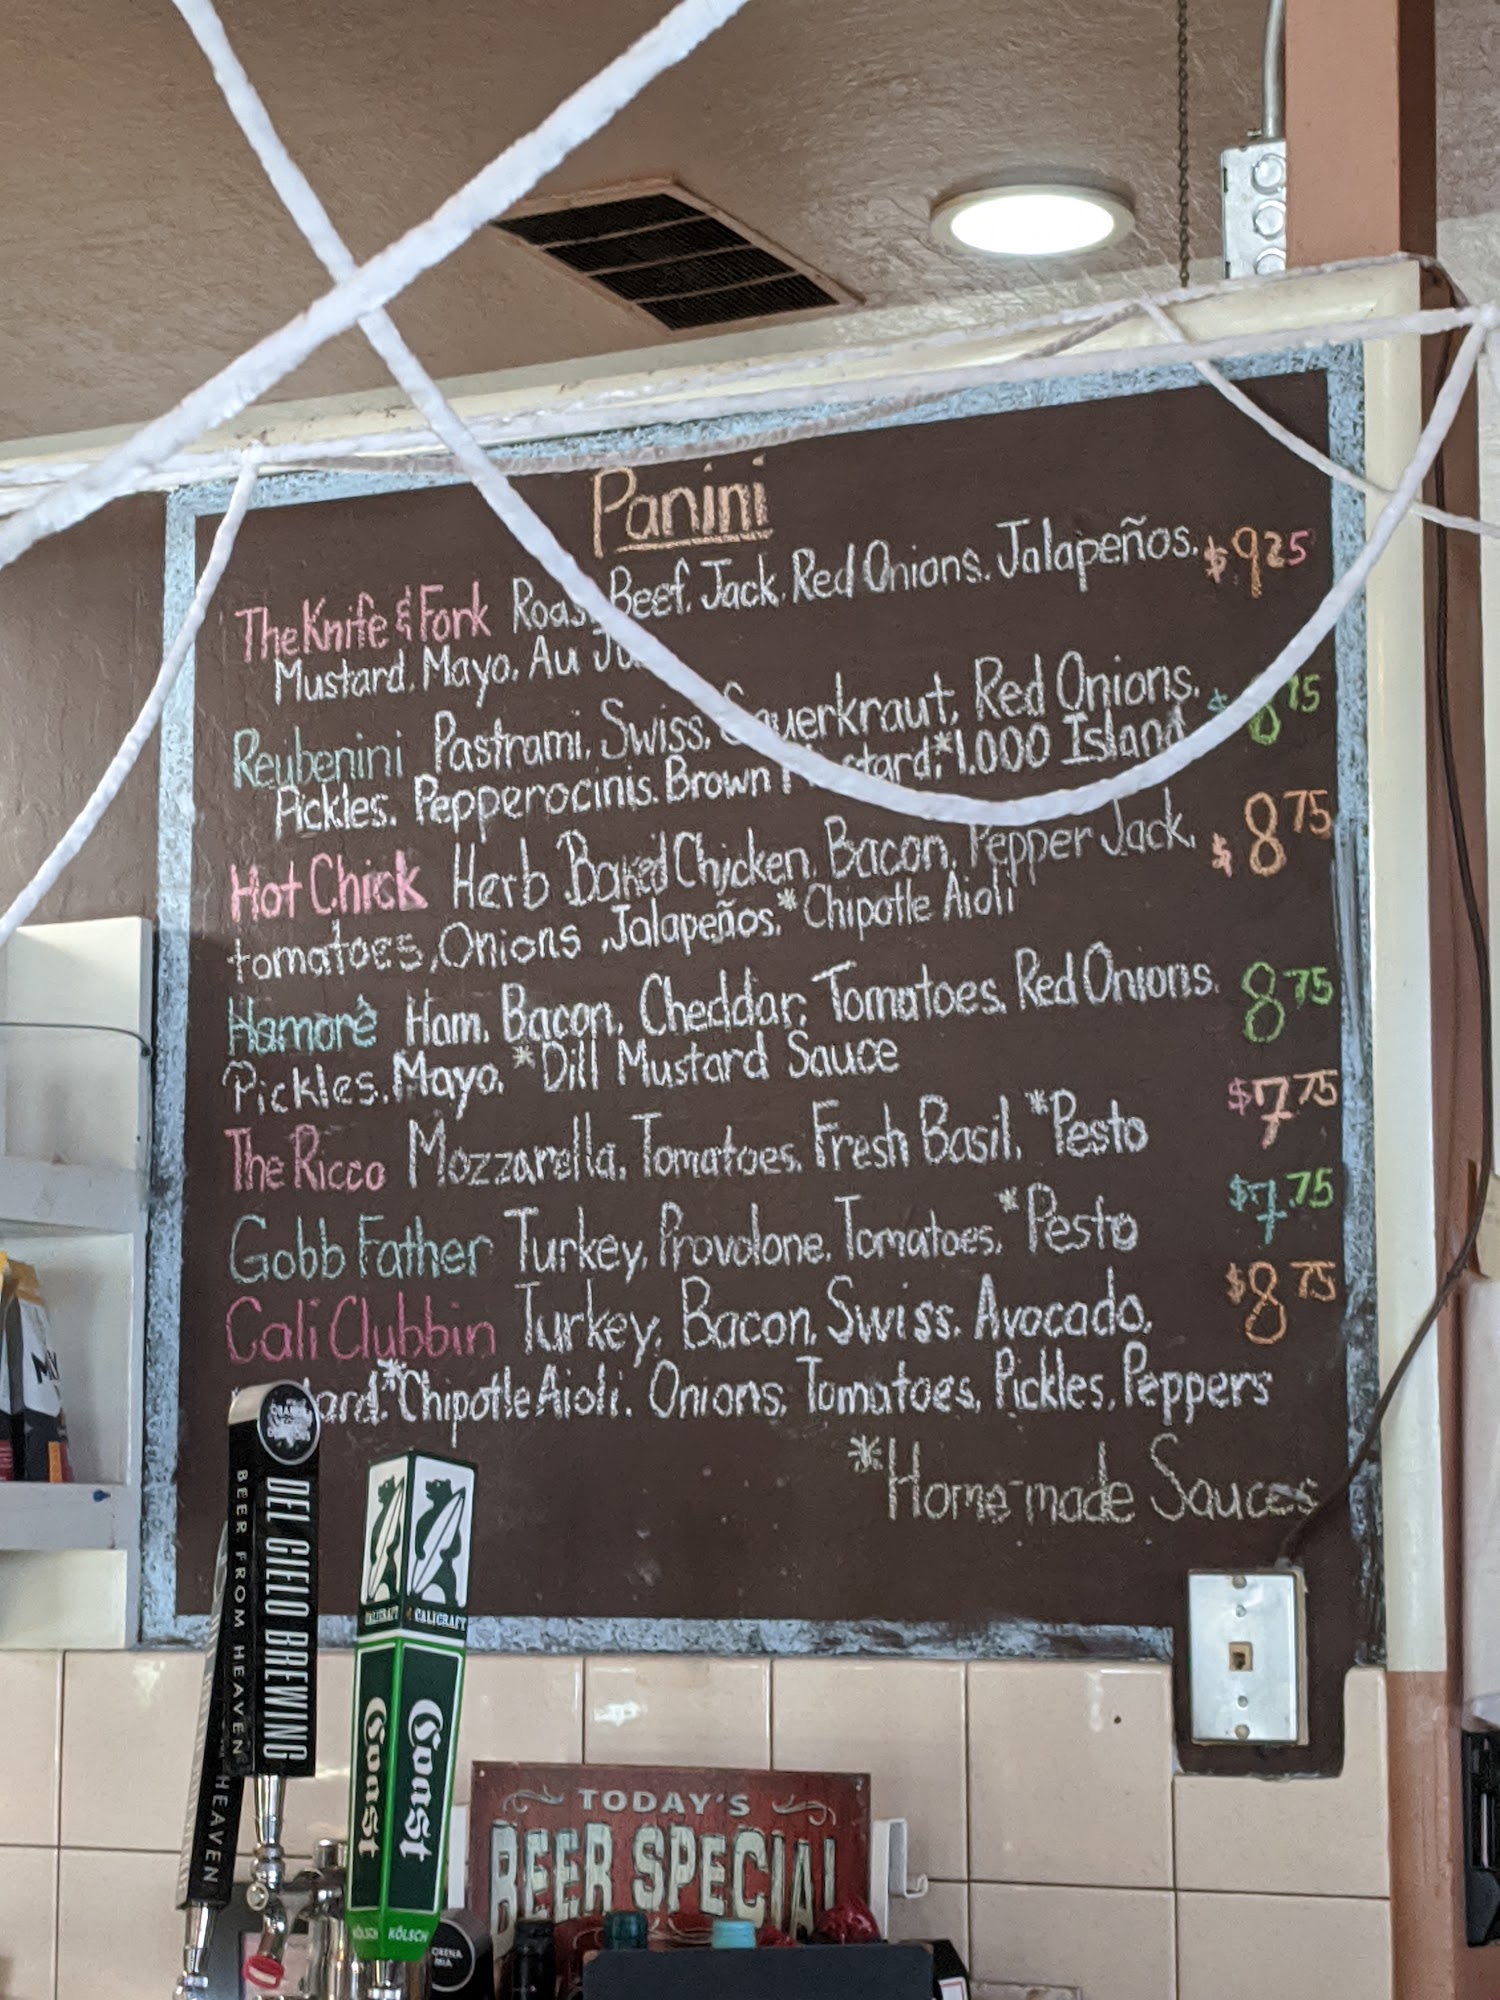 Panini
The Knife & Fork Roast Beef. Jack. Red Onions. Jalapeños. $9.25
Mustard. Mayo. Au
Reubenini Pastrami. Swiss. Sauerkraut. Red Onions. 75
Pickles. Pepperocinis. Brown Mustard. *1.000 Island
Hot Chick Herb Baked Chicken. Bacon. Pepper Jack. $8 75
tomatoes, Onions, Jalapeños. *Chipotle Aioli
Hamorè Ham. Bacon. Cheddar. Tomatoes. Red Onions. 8 75
Pickles. Mayo. *Dill Mustard Sauce
The Ricco Mozzarella. Tomatoes. Fresh Basil. *Pesto $7 75
Gobb Father Turkey. Provolone. Tomatoes. *Pesto $7.75
Cali Clubbin Turkey. Bacon. Swiss. Avocado. $8 75
*Chipotle Aioli. Onions. Tomatoes. Pickles. Peppers
*Home-made Sauces
DEL CIELO BREWING
BEER FROM HEAVEN
HEAVEN
CALICRAFT
CALICRAFT
Coast
Coast
KÖLSCH
KÖLSCH
TODAY'S
BEER SPECIAL